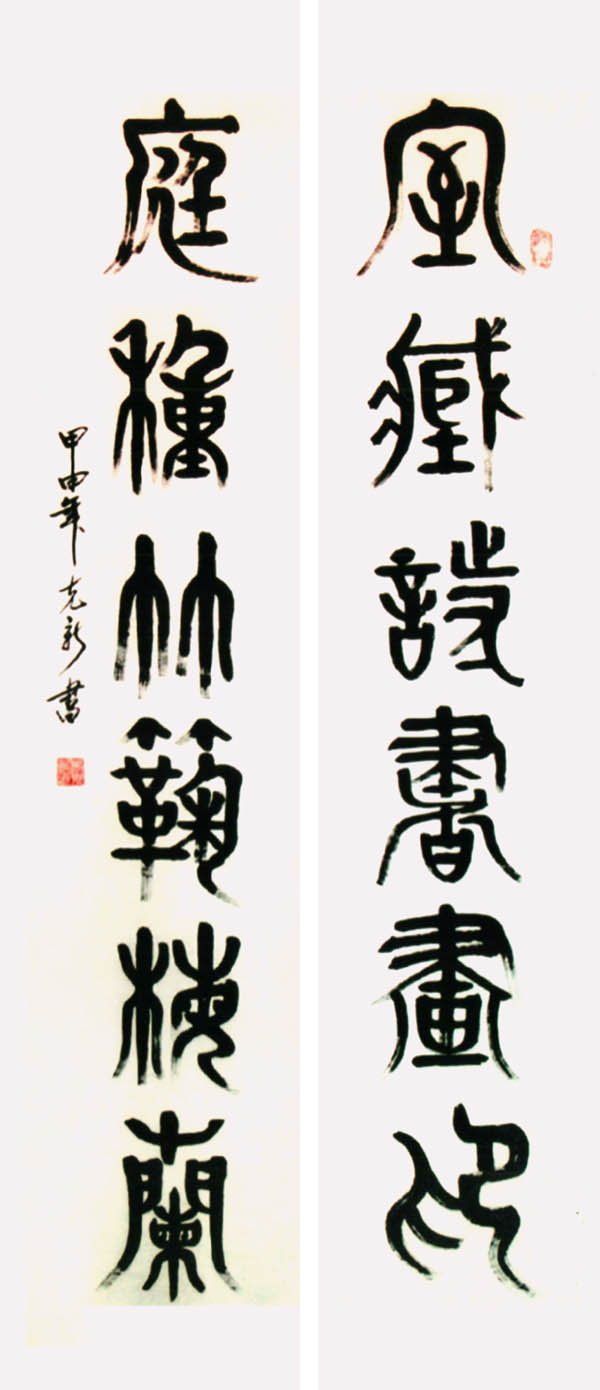 室藏詩書畫印
庭種竹菊梅蘭
甲申年克新書